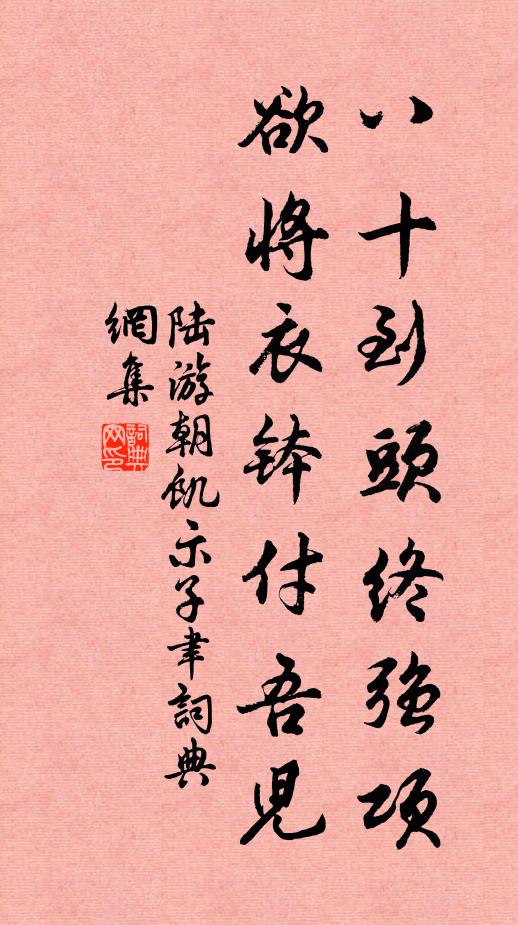 八十到頭終強項
欲將衣鉢付吾兒
陸游朝飢示子聿詞典
網集
詞典網印